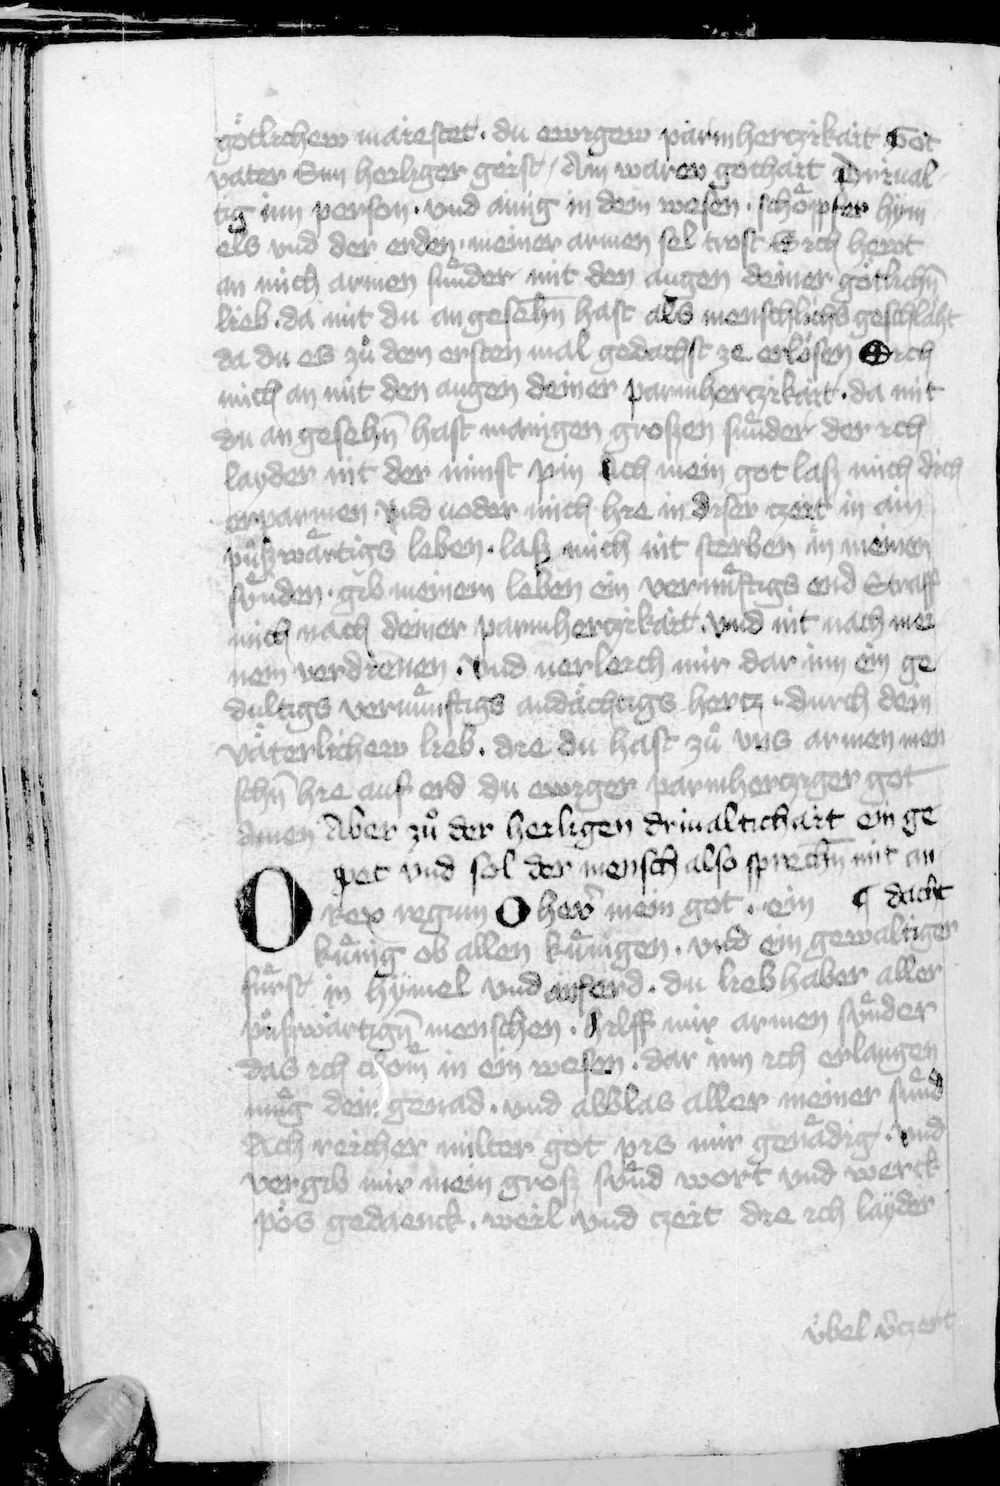 götlichew maiestet . du ewigew parmherczikait Got
vater Sun heiliger geist / Ain warew gothait Driual
tig inn person . vnd ainig in dem wesen . schöpffer hym
els vnd der erden . meiner armen sel trost Sich hewt
an mich armen sünder mit den augen deiner götlichn̄
lieb . da mit du an gesehn̄ hast als menschlichs geschläht
da du es zů dem ersten mal gedachst ze erlösen Sich
mich an mit den augen deiner parmherczikait . da mit
du an gesehn̄ hast manigen groszen sünder der ich
layder nit der minst pin Ach mein got lasz mich dich
erparmen . Vnd uoder mich hie in diser czeit in ain
půszwärtigs leben . lasz mich nit sterben in meinen
sünden . gib meinem leben ein vernüftigs end Straff
mich nach deiner parmherczikait . vnd nit nach mei
nem verdienen . Vnd uerleich mir dar inn ein ge
dultigs vernünftigs andächtigs hertz . durch dein
väterlichew lieb . die du hast zů vns armen men
schn̄ hie auf erd du ewiger parmhercziger got
amen Aber zů der heiligen driualtichait ein ge
pet vnd sol der mensch also sprechn̄ mit an
O Rex regum O her̄ mein got . ein ¶ dacht
künig ob allen künigen . vnd ein gewaltiger
fürst in hymel vnd auf erd . du liebhaber aller
půszwärtign̄ menschen . Hilff mir armen sünder
das ich chom in ein wesen . dar inn ich erlangen
müg dein genad . vnd ablas aller meiner sünd
Ach reicher milter got pis mir genädig . vnd
vergib mir mein grosz sünd wort vnd werck
pös gedaenck . weil vnd czeit die ich layder
übel v̄czert